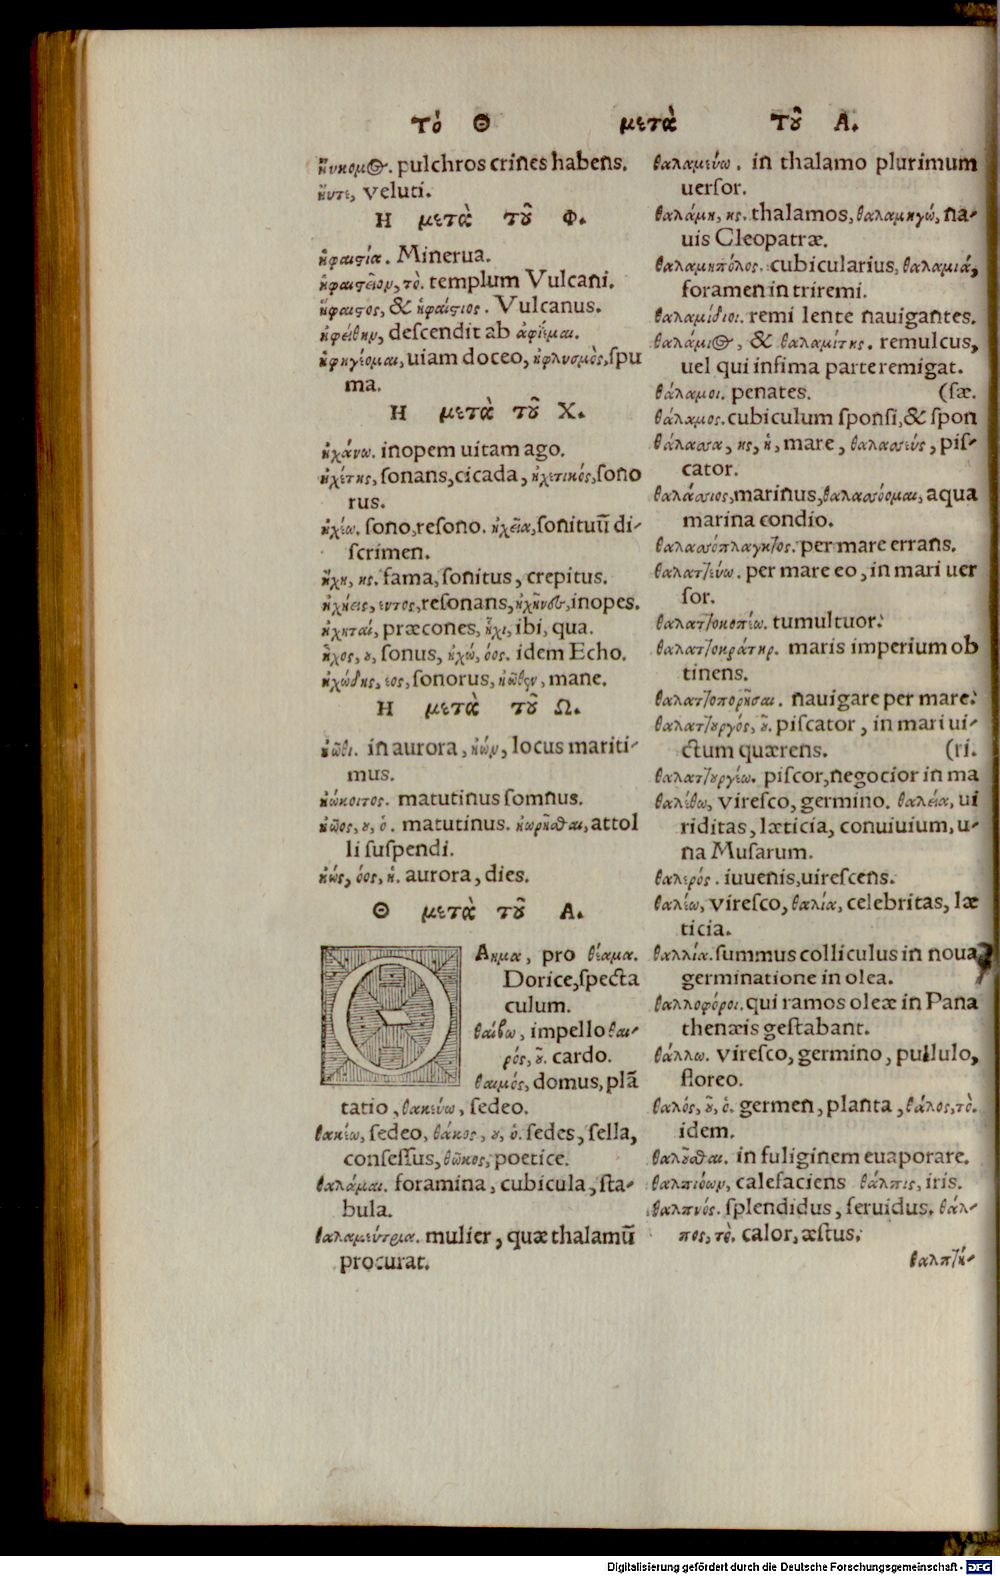 τὸ Θ μετὰ τοῦ Α.
ἠΰκομος. pulchros crines habens.
ἠΰτε, veluti.
Η μετὰ τοῦ Φ.
ἡφαιστία. Minerua.
ἡφαιστεῖον, τὸ. templum Vulcani.
ἥφαιστος, & ἡφαίστιος. Vulcanus.
ἠφείθην, descendit ab ἀφίεμαι.
ἡφηγέομαι, uiam doceo, ἠφλυσμὸς, spu
ma.
Η μετὰ τοῦ Χ.
ἠχάνω. inopem uitam ago.
ἠχέτης, sonans, cicada, ἠχετικός, sono
rus.
ἠχέω. sono, resono. ἠχεῖα, sonituũ di-
scrimen.
ἤχη, ης. fama, sonitus, crepitus.
ἠχήεις, εντος, resonans, inopes.
ἠχηταί, præcones, ἧχι, ibi, qua.
ἦχος, ου, sonus, ἠχώ, όος. idem Echo.
ἠχώδης, εος, sonorus, ἠῶθεν, mane.
Η μετὰ τοῦ Ω.
ἠῶθι. in aurora, ἠών, locus mariti-
mus.
ἠώκοιτος. matutinus somnus.
ἠῶος, ου, ὁ. matutinus. ἠωρῆσθαι, attol
li suspendi.
ἠώς, όος, ἡ. aurora, dies.
Θ μετὰ τοῦ Α.
Θ Αημα, pro θέαμα.
Dorice, specta
culum.
θαίβω, impello θαι-
ρός, οῦ. cardo.
θαιμός, domus, plã
tatio, θακεύω, sedeo.
θακέω, sedeo, θάκος, ου, ὁ. sedes, sella,
consessus, θῶκος, poetice.
θαλάμαι. foramina, cubicula, sta-
bula.
θαλαμεύτρια. mulier, quæ thalamũ
procurat.
θαλαμεύω. in thalamo plurimum
uersor.
θαλάμη, ης. thalamos, θαλαμηγώ, na-
uis Cleopatræ.
θαλαμηπόλος. cubicularius, θαλαμιά,
foramen in triremi.
θαλαμίδιοι. remi lente nauigantes.
θαλάμιος, & θαλαμίτης. remulcus,
uel qui infima parte remigat.
θάλαμοι. penates. (sæ.
θάλαμος. cubiculum sponsi, & spon
θάλασσα, ης, ἡ, mare, θαλασσεύς, pis-
cator.
θαλάσσιος, marinus, θαλασσόομαι, aqua
marina condio.
θαλασσόπλαγκτος. per mare errans.
θαλαττεύω. per mare eo, in mari uer
sor.
θαλαττοκοπέω. tumultuor.
θαλαττοκράτηρ. maris imperium ob
tinens.
θαλαττοπορῆσαι. nauigare per mare.
θαλαττουργός, οῦ. piscator, in mari ui-
ctum quærens. (ri.
θαλαττουργέω. piscor, negocior in ma
θαλέθω, viresco, germino. θαλεία, ui
riditas, læticia, conuiuium, u-
na Musarum.
θαλερός. iuuenis, uirescens.
θαλέω, viresco, θαλία, celebritas, læ
ticia.
θαλλία. summus colliculus in noua
germinatione in olea.
θαλλοφόροι. qui ramos oleæ in Pana
thenæis gestabant.
θάλλω. viresco, germino, pullulo,
floreo.
θαλός, οῦ, ὁ. germen, planta, θάλος, τὸ.
idem.
θαλοῦσθαι. in fuliginem euaporare.
θαλπιόων, calefaciens θάλπις, iris.
θαλπνός. splendidus, feruidus. θάλ-
πος, τὸ. calor, æstus.
θαλπτή-
Digitalisierung gefördert durch die Deutsche Forschungsgemeinschaft - DFG